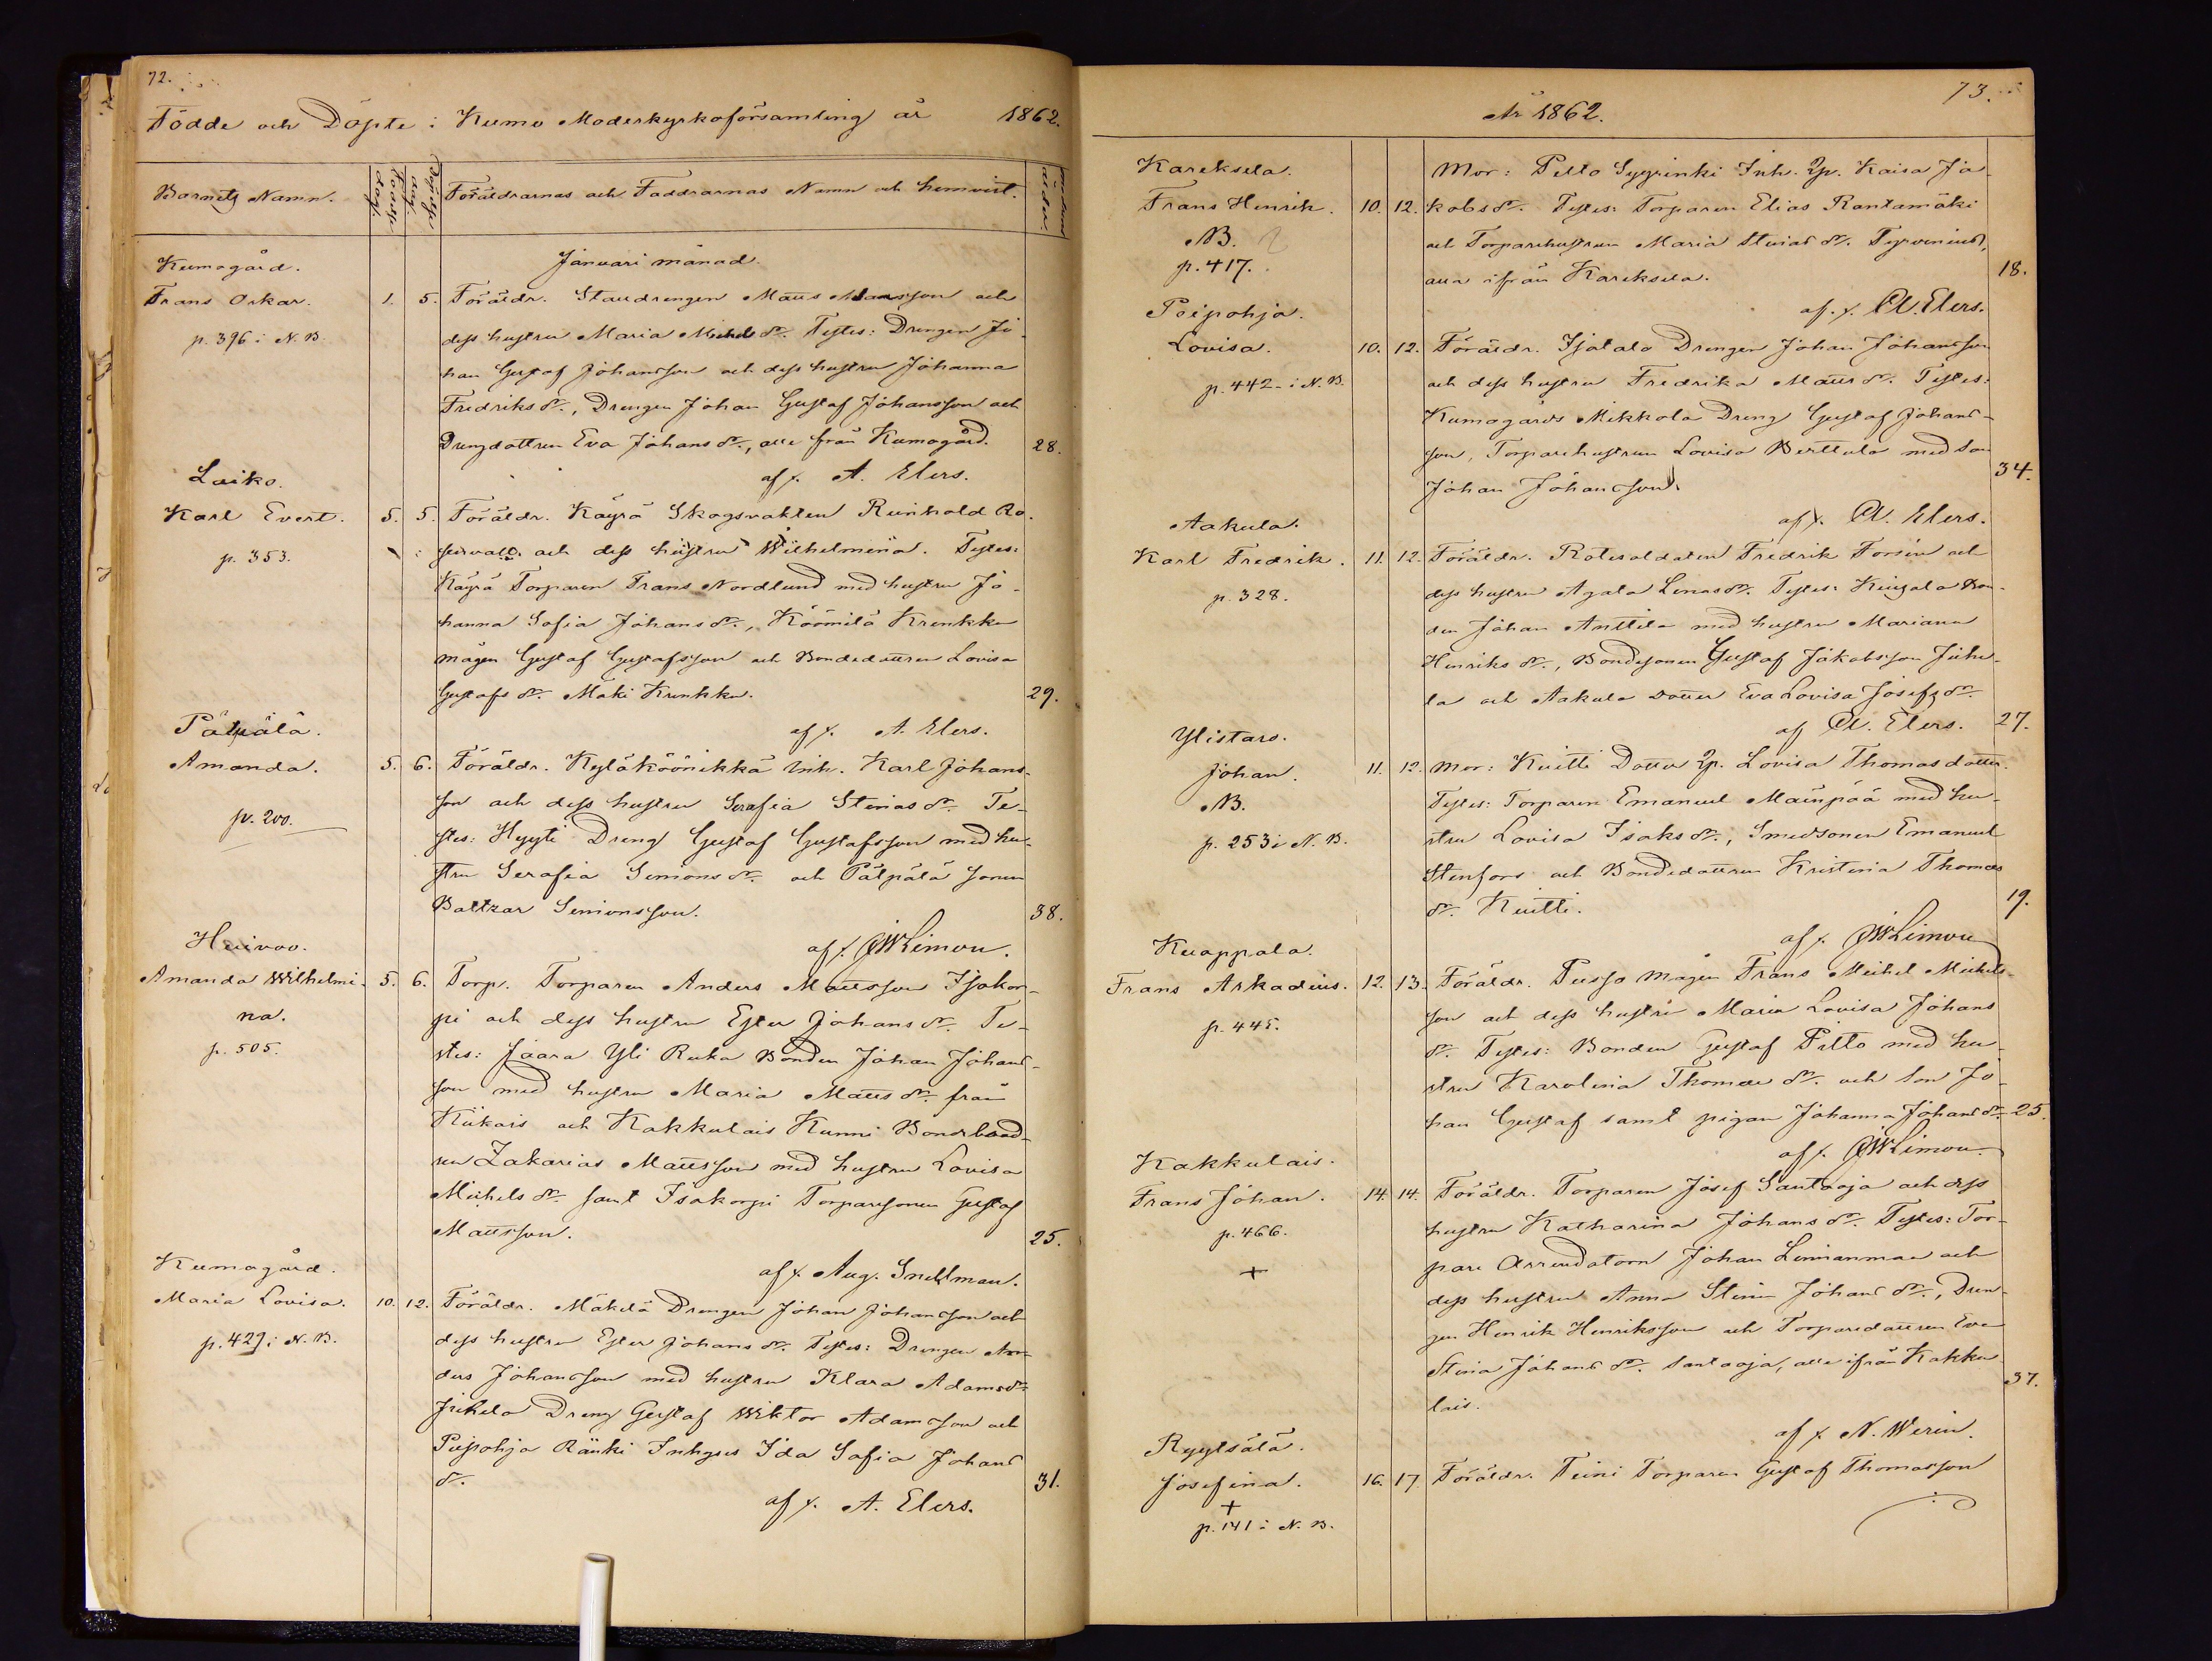 72.
Födde och Döpte i Kumo Moderkyrkoförsamling år 1862.
Barnets Namn.
Födelse dag.
Döpelse dag.
Föräldrarnas och Faddrarnas Namn och hemvist.
Modrens ålder.
Januari månad.
Kumogård.
Frans Oskar. 1. 5. Föräldr. Staudrengen Matts Mattsson och
p. 396 i N. B.
dess hustru Maria Michels dr. Testes: Drengen Jo-
han Gustaf Johansson och dess hustru Johanna
Fredriks dr., Drengen Johan Gustaf Johansson och
Drengdottren Eva Johans dr., alla från Kumogård. 28.
af f. A. Elers.
Laiko.
Karl Evert. 5. 5. Föräldr. Käyrä Skogsvakten Reinhold Ro-
p. 353.
servall och dess hustru Wilhelmina. Testes:
Käyrä Torparen Frans Nordlund med hustru Jo-
hanna Sofia Johans dr., Köömilä Krenkku
mågen Gustaf Gustafsson och Bondedottren Lovisa
Gustafs dr. Mäki Krunkku. 29.
af f. A. Elers.
Pälpälä.
Amanda. 5. 6. Föräldr. Kyläköönikkä Inh. Karl Johans-
p. 200.
son och dess hustru Serafia Stinas dr. Te-
stes: Hyyti Dreng Gustaf Gustafsson med hu-
stru Serafia Simons dr. och Pälpälä sonen
Baltzar Simonsson. 38.
af f. JWLimon.
Huivoo.
Amanda Wilhelmi- 5. 6. Torp. Torparen Anders Mattsson Isokor-
na.
p. 505.
pi och dess hustru Ester Johans dr. Te-
stes: Jaara Yli Ruka Bonden Johan Johans-
son med hustru Maria Matts dr. från
Kiukais och Kakkulais Kunni Bondbond-
ren Zakarias Mattsson med hustru Lovisa
Michels dr. samt Isokorpi Torparesonen Gustaf
Mattsson. 25.
af f. Aug. Snellman.
Kumogård.
Maria Lovisa. 10. 12. Föräldr. Mäkelä Drengen Johan Johansson och
p. 429 i N. B.
dess hustru Ester Johans dr. Testes: Drengen An-
ders Johansson med hustru Klara Adams dr.
Jukela Dreng Gustaf Wiktor Adamsson och
Peipohja Ränki Inhyses Ida Sofia Johans
dr. 31.
af f. A. Elers.
73.
År 1862.
Kareksela.
Mor: Pelto Syyrinki Inh. Qp. Kaisa Ja-
Frans Henrik. 10. 12. kobs dr. Testes: Torparen Elias Rantamäki
NB.
och Torparehustrun Maria Stinas dr. Tyrvenius,
p. 417.
alla ifrån Kareksela. 18.
af f. A. Elers.
Peipohja.
Lovisa. 10. 12. Föräldr. Isotalo Drengen Johan Johansson
p. 442 i N. B.
och dess hustru Fredrika Matts dr. Testes:
Kumogårds Mikkola Dreng Gustaf Johans-
son, Torparehustrun Lovisa Berttula med son
Johan Johansson. 34.
af f. A. Elers.
Aakula.
Karl Fredrik. 11. 12. Föräldr. Rotesoldaten Fredrik Forsén och
p. 328.
dess hustru Agata Linas dr. Testes: Bon-
den Johan Anttila med hustru Mariana
Henriks dr., Bondesonen Gustaf Jakobsson Juhe-
la och Aakula Dotter Eva Lovisa Josefs dr.
af A. Elers. 27.
Ylistaro.
Johan. 11. 12. Mor: Kuitti Dotter Qp. Lovisa Thomasdotter.
NB.
Testes: Torparen Emanuel Mainpää med hu-
p. 253 i N. B.
stru Lovisa Isaks dr., Smedsonen Emanuel
Stenfors och Bondedottren Kristina Thomas
dr. Kuitti. 19.
af f. JWLimon
Kuappala.
Frans Arkadius. 12. 13. Föräldr. Pusso mågen Frans Michel Michels-
p. 445.
son och dess hustru Maria Lovisa Johans
dr. Testes: Bonden Gustaf Pelto med hu-
stru Karolina Thomas dr. och son Jo-
han Gustaf samt pigan Johanna Johans dr. 25.
af f. JWLimon.
Kakkulais.
Frans Johan. 14. 14. Föräldr. Torparen Josef Santaoja och dess
p. 466.
+
hustru Katharina Johans dr. Testes: Tor-
pare Arrendatorn Johan Linnanmaa och
dess hustru Anna Stina Johans dr., Dren-
gen Henrik Henriksson och Torparedottren Eva
Stina Johans dr. Santaoja, alla ifrån Kakku-
lais. 37.
af f. N. Werin.
Ryytsälä.
Josefina. 16. 17. Föräldr. Teini Torparen Gustaf Thomasson
+
p. 141 i N. B.